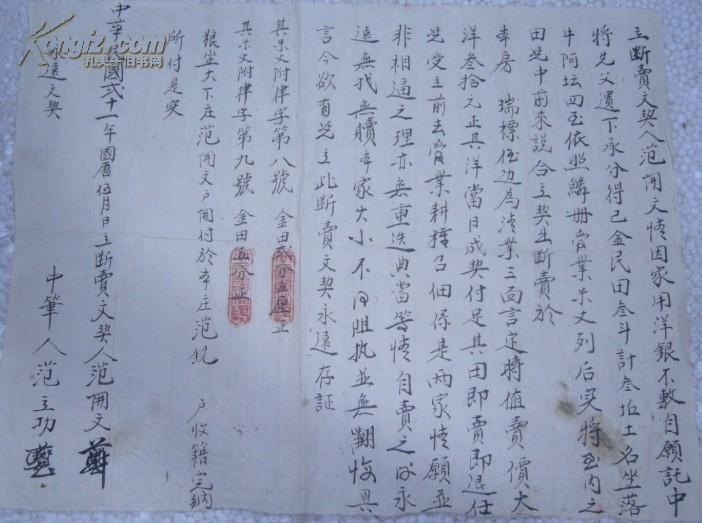 立断賣文契人范開文情因家用洋銀不敷自願託中
將先父遺下承分得己金民田叁斗計叁坵土名坐落
牛阿坛四至依照鱗册管業米文列后実將至内之
田凭中前來說合立契出断賣於
本房 瑞標侄边為清業三面言定時值賣價大
洋叁拾元正其洋當日成契付足其田即賣即退任
凭受主前去管業耕種召佃係是两家情願並
非相逼之理亦無重迭典當等情自賣之後永
遠無找無贖本家大小不得阻执並無翻悔異
言今欲有凭立此断賣文契永遠存証
其米文附律字第八號 金田 分五厘正
其米文附律字第九號 金田五分正
狼坐大下庄范開文户開付於本庄范銑 户收籍完納
所付是実
中華民國弍十一年國曆伍月日立断賣文契人范開文
永遠文契
中筆人范立功
孔夫子旧书网